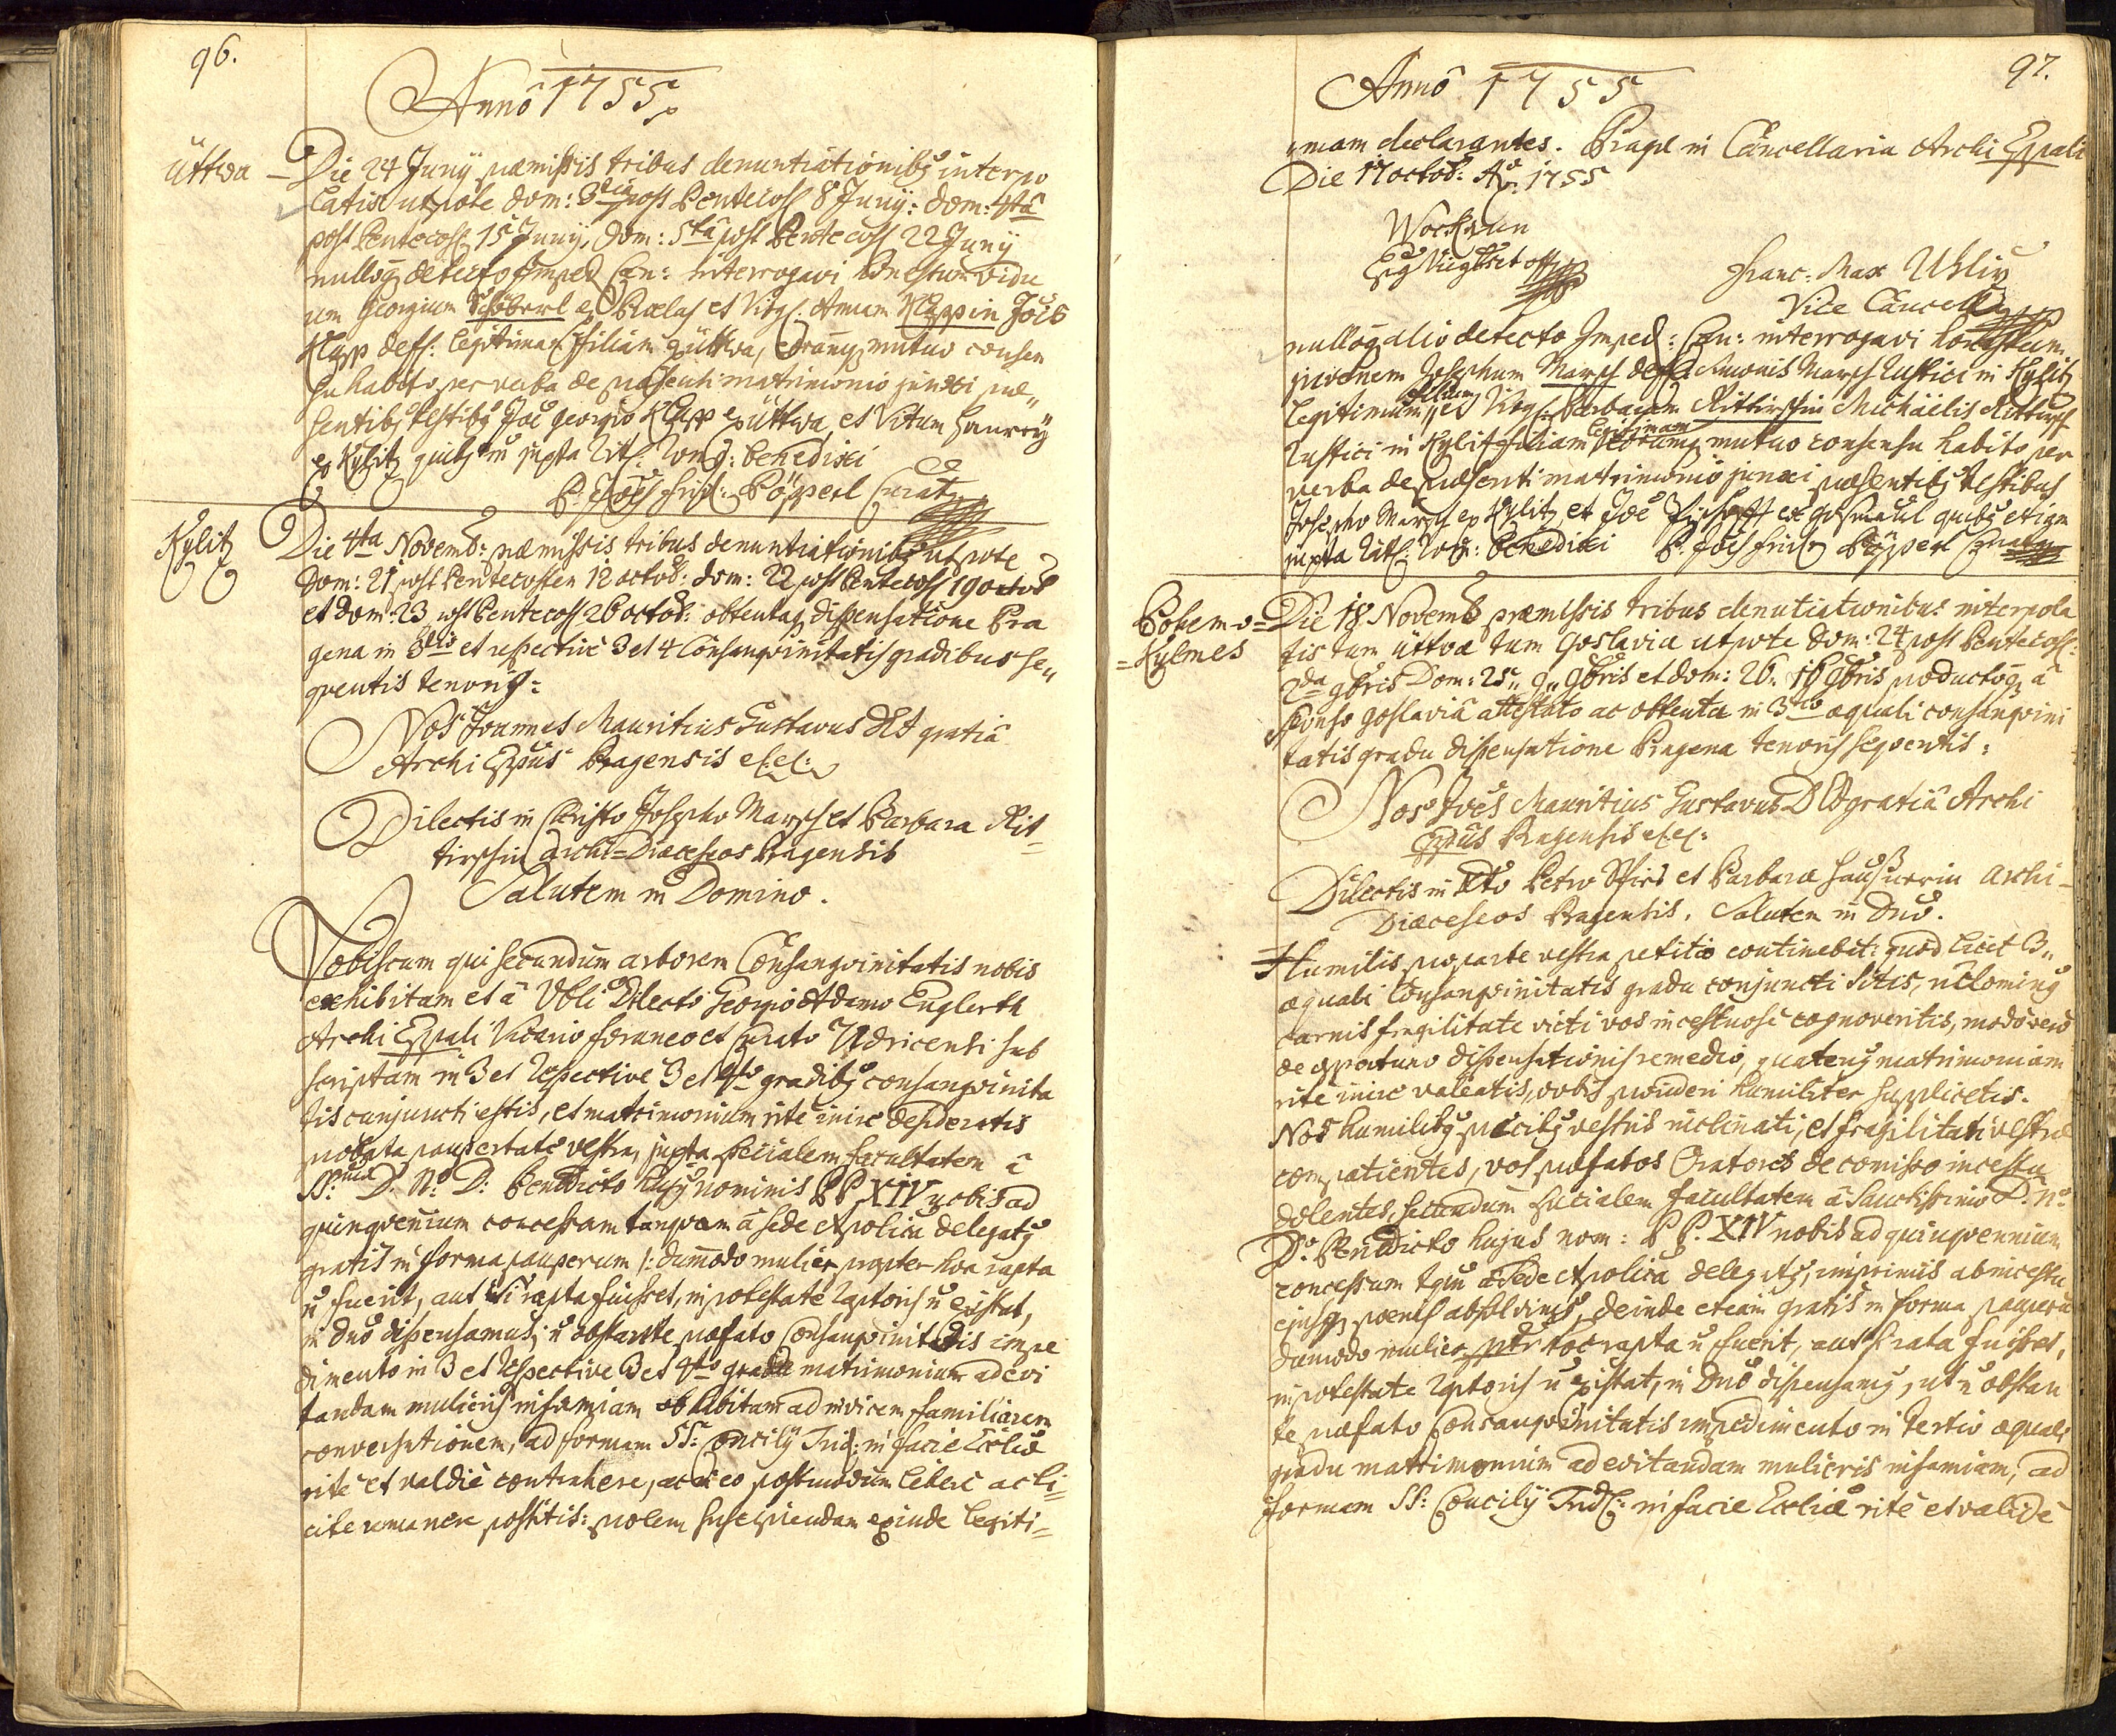 96.
Annô 1755
Üttwa
Die 24 Junÿ præmissis tribus denuntiationibg interpo
latis utpote dom: 3tia post Pentecost 8 Junÿ: dom: 4tâ
post Pentecost 15 Junÿ, Dom: 5ta post Pentecost 22 Junÿ
nulloq detecto Imped Can: interrogavi honestum vidu
um Georgium Schöberl ex et Virg: Annam Klappin Jois
Klapp deff: legitimam filiam ex üttwa, eorumq mutuo consen
su habito per verba de præsenti matrimonio junxi præ„
sentibg testibg Joe Georgio Klapp ex üttwa, et Vitum
ex Kylitz quibg juxta Rit: Rom: benedixi
P. Joes Frid: Pöpperl Curatg
Kylitz
Die 4ta Novemb: præmissis tribus denuntiationibg utpote
Dom: 21 post Pentecosten 12 octob: dom: 22 post Pentecost 19 octob
et dom: 23 post Pentecost 26 octob: obtentaq dispensatione Pra
gena in 3tio et respective 3 et 4 Consangvinitatis gradibus se„
quentis tenoris:
Nos Joannes Mauritius Gustavus DEI gratiâ
Archi Eppus Pragensis etc etc:
Dilectis in Christo Josepho Marsch et Barbara Rit=
tirschin Archi=Diæceseos Pragensis
Salutem in Domino.
Vobiscum qui secundum arborem Consangvinitatis nobis
exhibitam et â Nobli Dilecto Georgio Adamo Englerth
Archi Eppali Vicario foraneo et Curato Udricensi sub
scriptam in 3 et respective 3 et 4to gradibg consangvinita
tis conjuncti estis, et matrimonium rite inire desideratis
probata paupertate vestra, juxta specialem facultatem â
SS:mo D. N: D: Benedicto hujg nominis PP XIV nobis ad
quinquenium concessam tanquam â sede Apolica delegatg
gratis in forma pauperum /: dummodo mulier propter hoc rapta
n fuerit, aut si rapta fuisset, in potestate raptoris n existat,
in Dno dispensamus, n obstante præfato Consangvinitatis impe
dimento in 3 et respective 3 et 4to gradu matrimonium ad evi
tandam mulieris infamiam ob habitam ad invicem familiarem
conversationem, ad formam SS: Concilÿ Trid: in facie Eccliæ
rite et valide contrahere, ac in eo postmodum libere ac li=
cite remanere possitis: prolem suscipiendam exinde legiti=
97.
Annô 1755
mam declarantes. Pragæ in Cancellaria Archi Eppali
Die 17 octob: Ao: 1755
Franc: Max Uhliÿ
Vice Cancell
nulloq alio detecto Imped: Can: interrogavi honestum
juvenem Josephum Marsch deff: Simonis Marsch Rustici in Kylitz
legitimum filium, et Virg: Barbaram Rittirschin Michäelis Rittirsch
Rustici in Kylitz filiam legitimam eorumq mutuo consensu habito per
verba de præsenti matrimonio junxi præsentibg testibus
Josepho Marsch ex Kylitz et Joe ex Gosmaul quibg etiam
juxta Rit: Rom: benedixi P. Joes Frid Pöpperl Curatg
Bohemo=
=Kylmes
Die 18 Novemb præmissis tribus denutiationibus interpola
tis tum üttwæ tum Goslaviæ utpote Dom: 24 post Pentecost:
2da 9bris Dom: 25„ 9„ 9bris et dom: 26. 16 9bris productoq â
sponso Goslaviâ attestato ac obtenta in 3tio æquali consangvini
tatis gradu dispensatione Pragena tenoris seqventis:
Nos Joês Mauritius Gustavus DEI gratiâ Archi
Eppus Pragensis etc etc:
Dilectis in Xto Petro et Barbaræ Haußnerin Archi-
Diæceseos Pragensis. Salutem in Dno.
Humilis pro parte vestra petitio continebat: quod licet 3„
æquali Consangvinitatis gradu conjuncti sitis, nihloming
carnis fragilitate victi vos incestuose cognoveritis, modo vero
de oportuno dispensationis remedio, quateng matrimonium
rite inire valeatis, vobis provideri humiliter supplicetis.
Nos humilibg precibg vestris inclinati, et fragilitati vestræ
compatientes, vos præfatos Oratores de comisso incestu
dolentes, secundum specialem facultatem â Sanctissimo D. No
Do Benedicto hujus nom: PP. XIV nobis ad quinquennium
concessam tqm â Sede Apolica delegatg, imprimis ab incestu
ejusq poenis absolvimg, deinde etiam gratis in forma pauperu
dumodo mulier pptr hoc rapta n fuerit, aut si rata fuisset,
in potestate raptoris n existat, in Dno dispensamg, ut n obstan
te præfato Consangvinitatis impedimento in tertio æquali
gradu matrimonium ad evitandam mulieris infamiam, ad
formam SS: Concilÿ Trid: in facie Eccliæ rite et valide